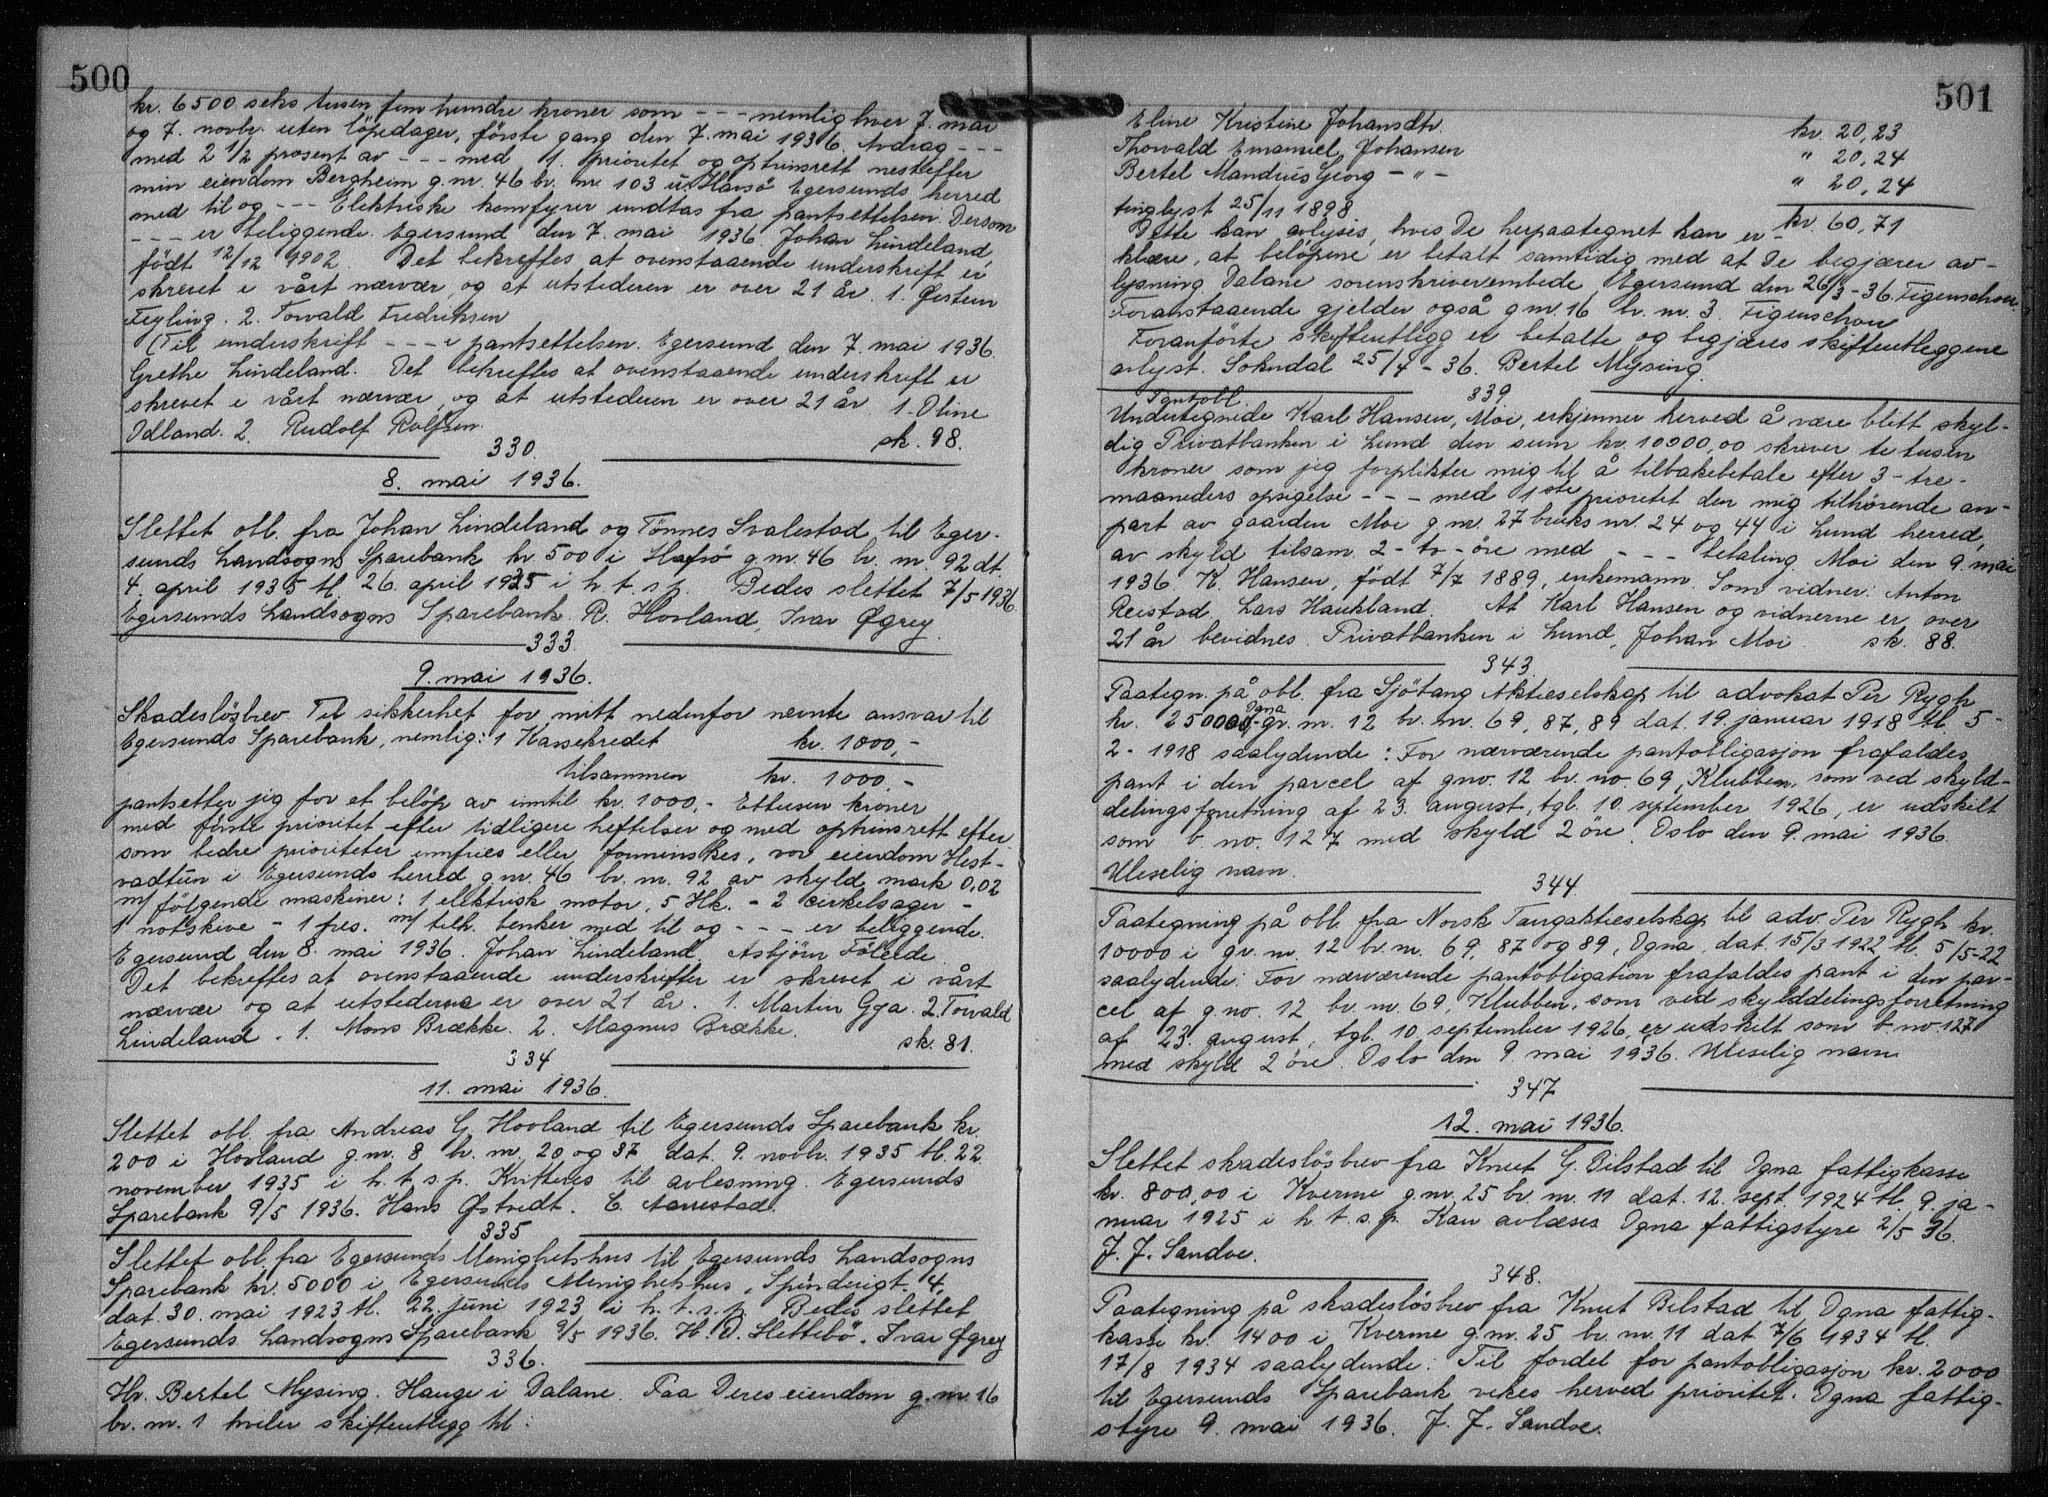 500
kr. 6500 seks tusen fem hundre kroner som - - - nemlig hver 7. mai
og 7. novbr. uten löpedager, förste gang den 7. mai 1936. Avdrag - - -
med 2 1/2 prosent av - - - med 1. prioritet og optrinsrett nestefter
min eiendom Bergheim g.nr. 46 br. nr. 103 u. Havsö Egersunds herred
med til og - - - Elektriske komfyrer undtas fra pantsettelsen. Dersom
- - - er beliggende. Egersund den 7. mai 1936. Johan Lindeland,
födt 12/12 1902. Det bekreftes at ovenstaaende underskrift er
skrevet i vårt nærvær og at utstederen er over 21 år. 1. Østein
Feyling. 2. Torvald Fredriksen
(Til underskrift - - - i pantsettelsen. Egersund den 7. mai 1936.
Grethe Lindeland. Det bekreftes at ovenstaaende underskrift er
skrevet i vårt nærvær og at utstederen er over 21 år 1. Oline
Odland. 2. Rudolf Rolfsen. sk. 98.
330.
8. mai 1936.
Slettet obl. fra Johan Lindeland og Tönnes Svalestad til Eger-
sunds Landsogns Sparebank kr. 500 i Hafsö g.nr. 46 br. nr. 92 dt.
4. april 1935 tl. 26. april 1935 i h. t. s. p. Bedes slettet 7/5 1936.
Egersunds Landsogns Sparebank. R. Hovland, Ivar Øgrey.
333.
9. mai 1936.
Skadeslösbrev Til sikkerhet for mitt nedenfor nevnte ansvar til
Egersunds Sparebank, nemlig: 1 Kassekredit kr. 1000,-
tilsammen kr. 1000,-
pantsetter jeg for et belöp av inntil kr. 1000,- Ettusen kroner
med förste prioritet efter tidligere heftelser og med optrinsrett efter
som bedre prioriteter innfries eller forminskes, vor eiendom Hest-
vadtun i Egersunds herred g.nr. 46 br. nr. 92 av skyld mark 0,02
m/ fölgende maskiner: 1 elektrisk motor, 5 Hk. - 2 cirkelsager -
1 notskive - 1 fres. m/ tilh. benker med til og - - - er beliggende.
Egersund den 8. mai 1936. Johan Lindeland. Asbjörn Fölelde.
Det bekreftes at ovenstaaende underskrifter er skrevet i vårt
nærvær og at utstederne er over 21 år. 1. Martin Gya. 2. Torvald
Lindeland. 1. Mons Brække. 2. Magnus Brække. sk. 81.
334
11. mai 1936.
Slettet obl. fra Andreas G. Hovland til Egersunds Sparebank kr.
200 i Hovland g.nr. 8 br. nr. 20 og 37 dat. 9. novbr. 1935 tl. 22.
november 1935 i h. t. s. p. Kvitteres til avlesning. Egersunds
Sparebank 9/5 1936. Hans Østvedt. C. Aarrestad.
335
Slettet obl. fra Egersunds Menighetshus til Egersunds Landsogns
Sparebank kr. 5000 i Egersunds Menighetshus, Spinderigt. 4,
dat. 30. mai 1923 tl. 22. juni 1923 i h. t. s. p. Bedes slettet
Egersunds Landsogns Sparebank 9/5 1936. H. D. Slettebö. Ivar Øgrey
336.
Hr. Bertel Mysing. Hauge i Dalane. Paa Deres eiendom g.nr. 16
br. nr. 1 hviler skifteutlegg til:
501
Eline Kristine Johansdtr. kr. 20,23
Thorvald Emanuel Johansen " 20,24
Bertel Mandrius Georg - " - " 20,24
tinglyst 25/11 1898 kr. 60,71
Dette kan avlyses, hvis De herpaategnet kan er-
klære, at belöpene er betalt samtidig med at De begjærer av-
lysning. Dalane sorenskriverembede Egersund den 26/3-36. Figenschou.
Foranstaaende gjelder også g.nr. 16 br. nr. 3. Figenschou
Foranförte skifteutlegg er betalte og begjæres skifteutleggene
avlyst. Sokndal 25/4-36. Bertel Mysing.
339.
Pantobl.
Undertegnede Karl Hansen, Moi, erkjenner herved å være blitt skyl-
dig Privatbanken i Lund den sum kr. 10000,00 skriver ti tusen
kroner som jeg forplikter mig til å tilbakebetale efter 3-tre-
maaneders opsigelse - - - med 1ste prioritet den mig tilhörende an-
part av gaarden Moi g.nr. 27 bruks nr. 24 og 44 i Lund herred,
av skyld tilsam. 2-to-öre med - - - betaling. Moi den 9. mai
1936. K. Hansen, födt 7/7 1889, enkemann. Som vidner: Anton
Reistad, Lars Haukland. At Karl Hansen og vidnerne er over
21 år bevidnes. Privatbanken i Lund, Johan Moi. sk. 88.
343.
Paategn. på obl. fra Sjötang Aktieselskap til advokat Per Rygh
kr. 250000,- Ogna gr. nr. 12 br. nr. 69, 87, 89 dat. 19. januar 1918 tl. 5-
2-1918 saalydende: For nærværende pantobligasjon frafaldes
pant i den parcel af gno. 12 br. no. 69, Klubben, som ved skyld-
delingsforretning af 23. august, tgl. 10. september 1926, er udskilt
som b. no. 127 med skyld 2 öre. Oslo den 9. mai 1936.
Uleselig navn.
344.
Paategning på obl. fra Norsk Tangaktieselskap til adv. Per Rygh kr.
10000 i gr. nr. 12 br. nr. 69, 87 og 89, Ogna, dat. 15/3 1922 tl. 5/5-22
saalydende: For nærværende pantobligation frafaldes pant i den par-
cel af g.no. 12 br. nr. 69, Klubben, som ved skylddelingsforretning
af 23. august, tgl. 10. september 1926, er udskilt som b. no 127
med skyld 2 öre. Oslo den 9. mai 1936. Uleselig navn
347
12. mai 1936.
Slettet skadeslösbrev fra Knut G. Bilstad til Ogna fattigkasse
kr. 800,00 i Kverme g.nr. 25 br. nr. 11 dat. 12. sept. 1924 tl. 9. ja-
nuar 1925 i h. t. s. p. Kan avlæses. Ogna fattigstyre 2/5 36.
J. J. Sandve.
348.
Paategning på skadeslösbrev fra Knut Bilstad til Ogna fattig-
kasse kr. 1400 i Kverme g.nr. 25 br. nr. 11 dat. 7/6 1934 tl.
17/8 1934 saalydende: Til fordel for pantobligasjon kr. 2000
til Egersunds Sparebank vikes herved prioritet. Ogna fattig-
styre 9. mai 1936. J. J. Sandve.